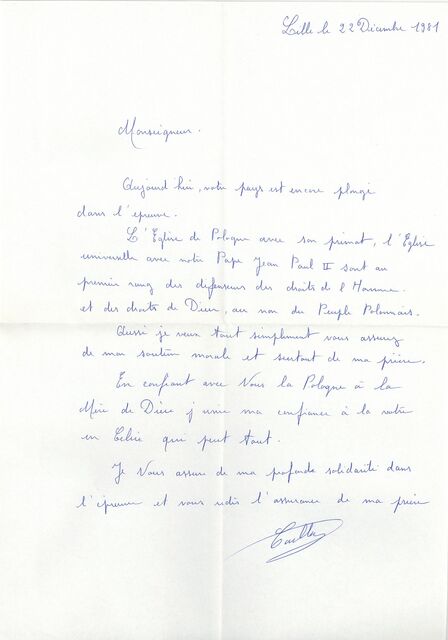 Lille le 22 Décembre 1981
Monseigneur.
Aujourd'hui, votre pays est encore plongé
dans l'épreuve.
L'Eglise de Pologne avec son primat, l'Eglise
universelle avec notre Pape Jean Paul II sont au
premier rang des defenseurs des droits de l'Homme
et des droits de Dieu, au nom du Peuple Polonais.
Aussi je veux tout simplement vous assurer
de mon soutien morale et surtout de ma prière.
En confiant avec Vous la Pologne à la
Mère de Dieu j'unie ma confiance à la votre
en Celui qui peut tout.
Je Vous assure de ma profonde solidarité dans
l'épreuve et vous redis l'assurance de ma prière